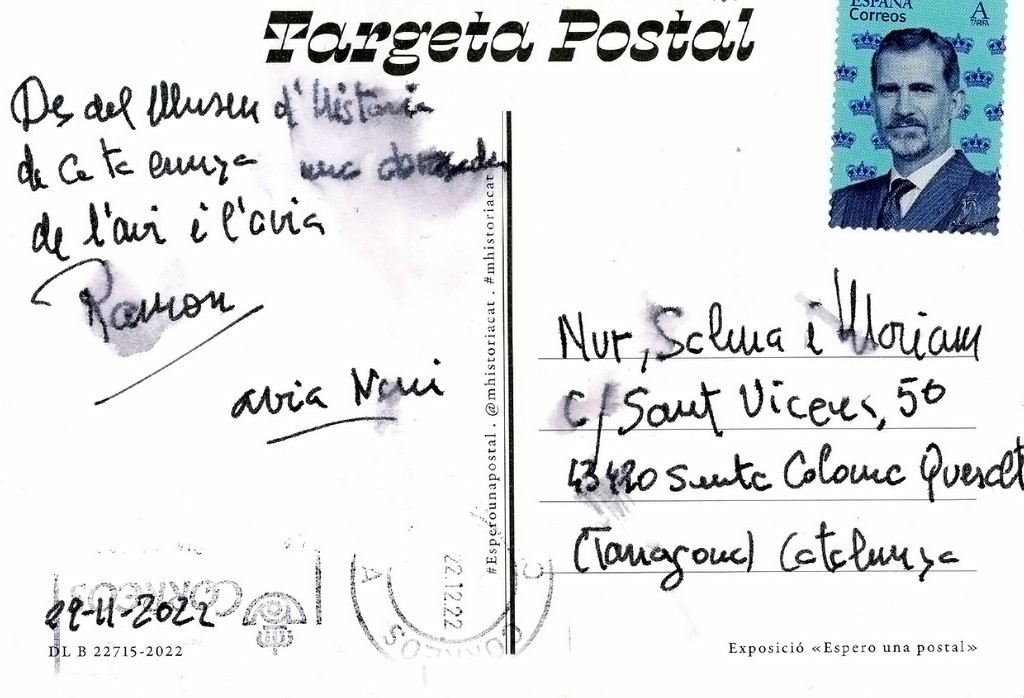 Targeta Postal
ESPAÑA
Correos
A
TARIFA
Des del Museu d'Història
de Catalunya una abraçada
de l'avi i l'àvia
Ramon
avia Nuri
29-11-2022
CORREOS
DL B 22715-2022
22.12.22
CORREOS
#Esperounapostal . @mhistoriacat . #mhistoriacat
Nur, Salma i Moriam
c/ Sant Vicenç, 50
43420 Santa Coloma Queralt
(Tarragona) Catalunya
Exposició «Espero una postal»